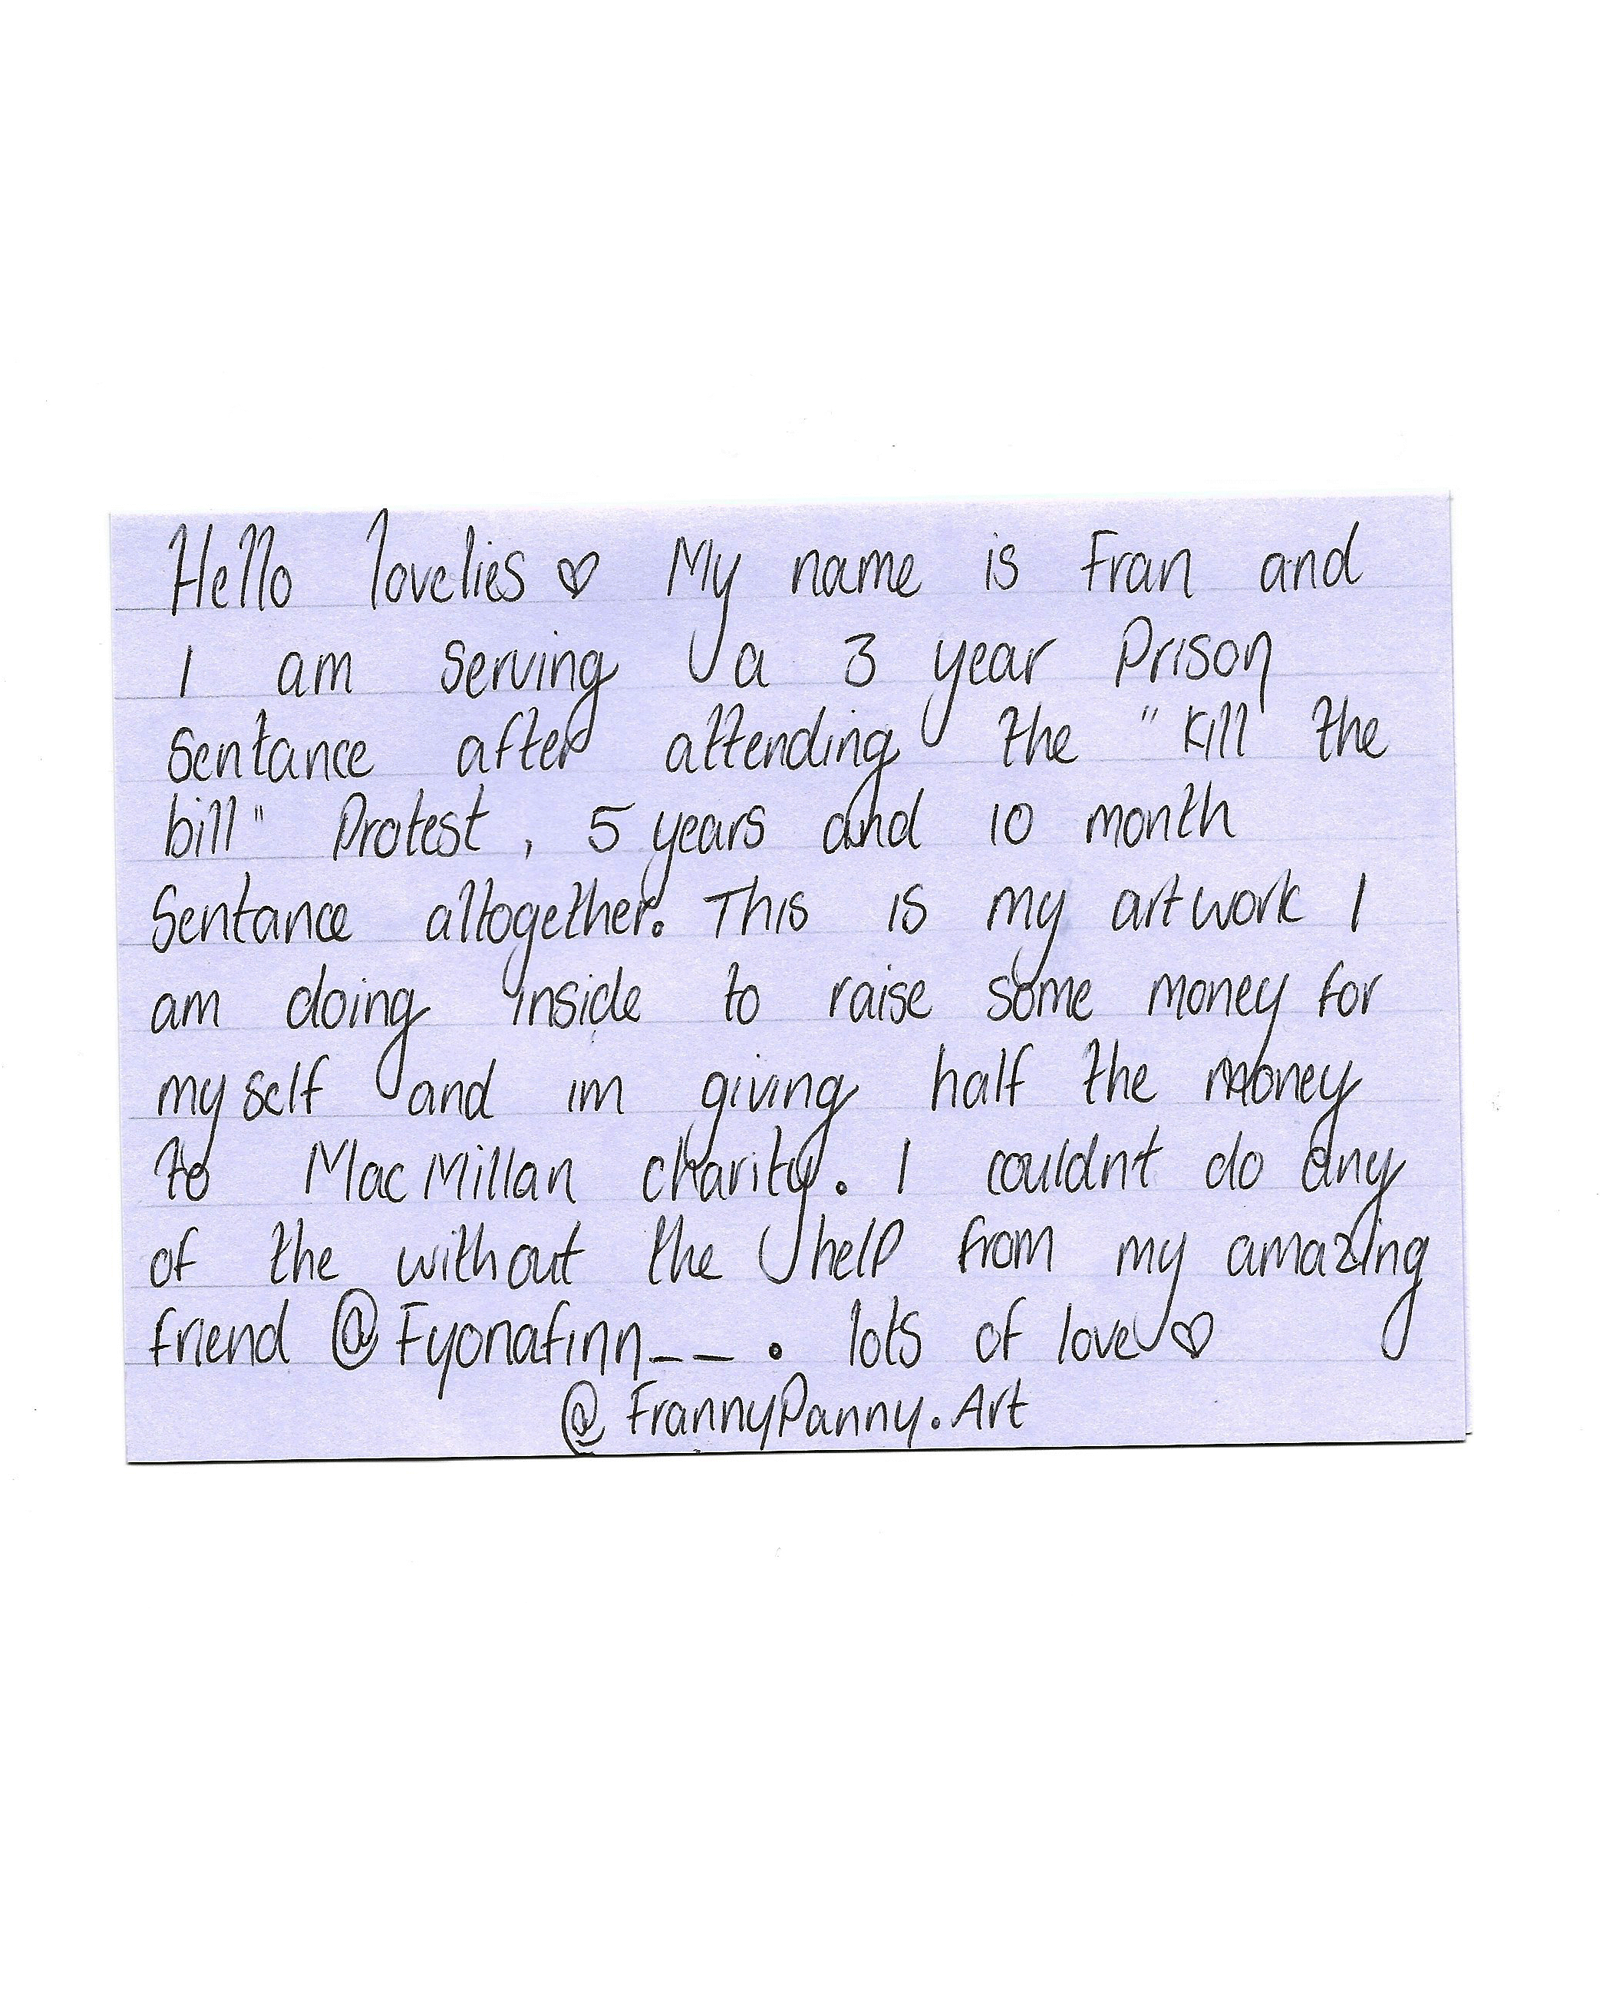 Hello lovelies ♡ My name is Fran and
I am serving a 3 year Prison
Sentance after attending the "Kill the
bill" Protest, 5 years and 10 month
Sentance altogether. This is my artwork I
am doing inside to raise some money for
myself and im giving half the money
to MacMillan charity. I couldnt do any
of the without the help from my amazing
friend @Fyonafinn__. lots of love ♡
@FrannyPanny.Art